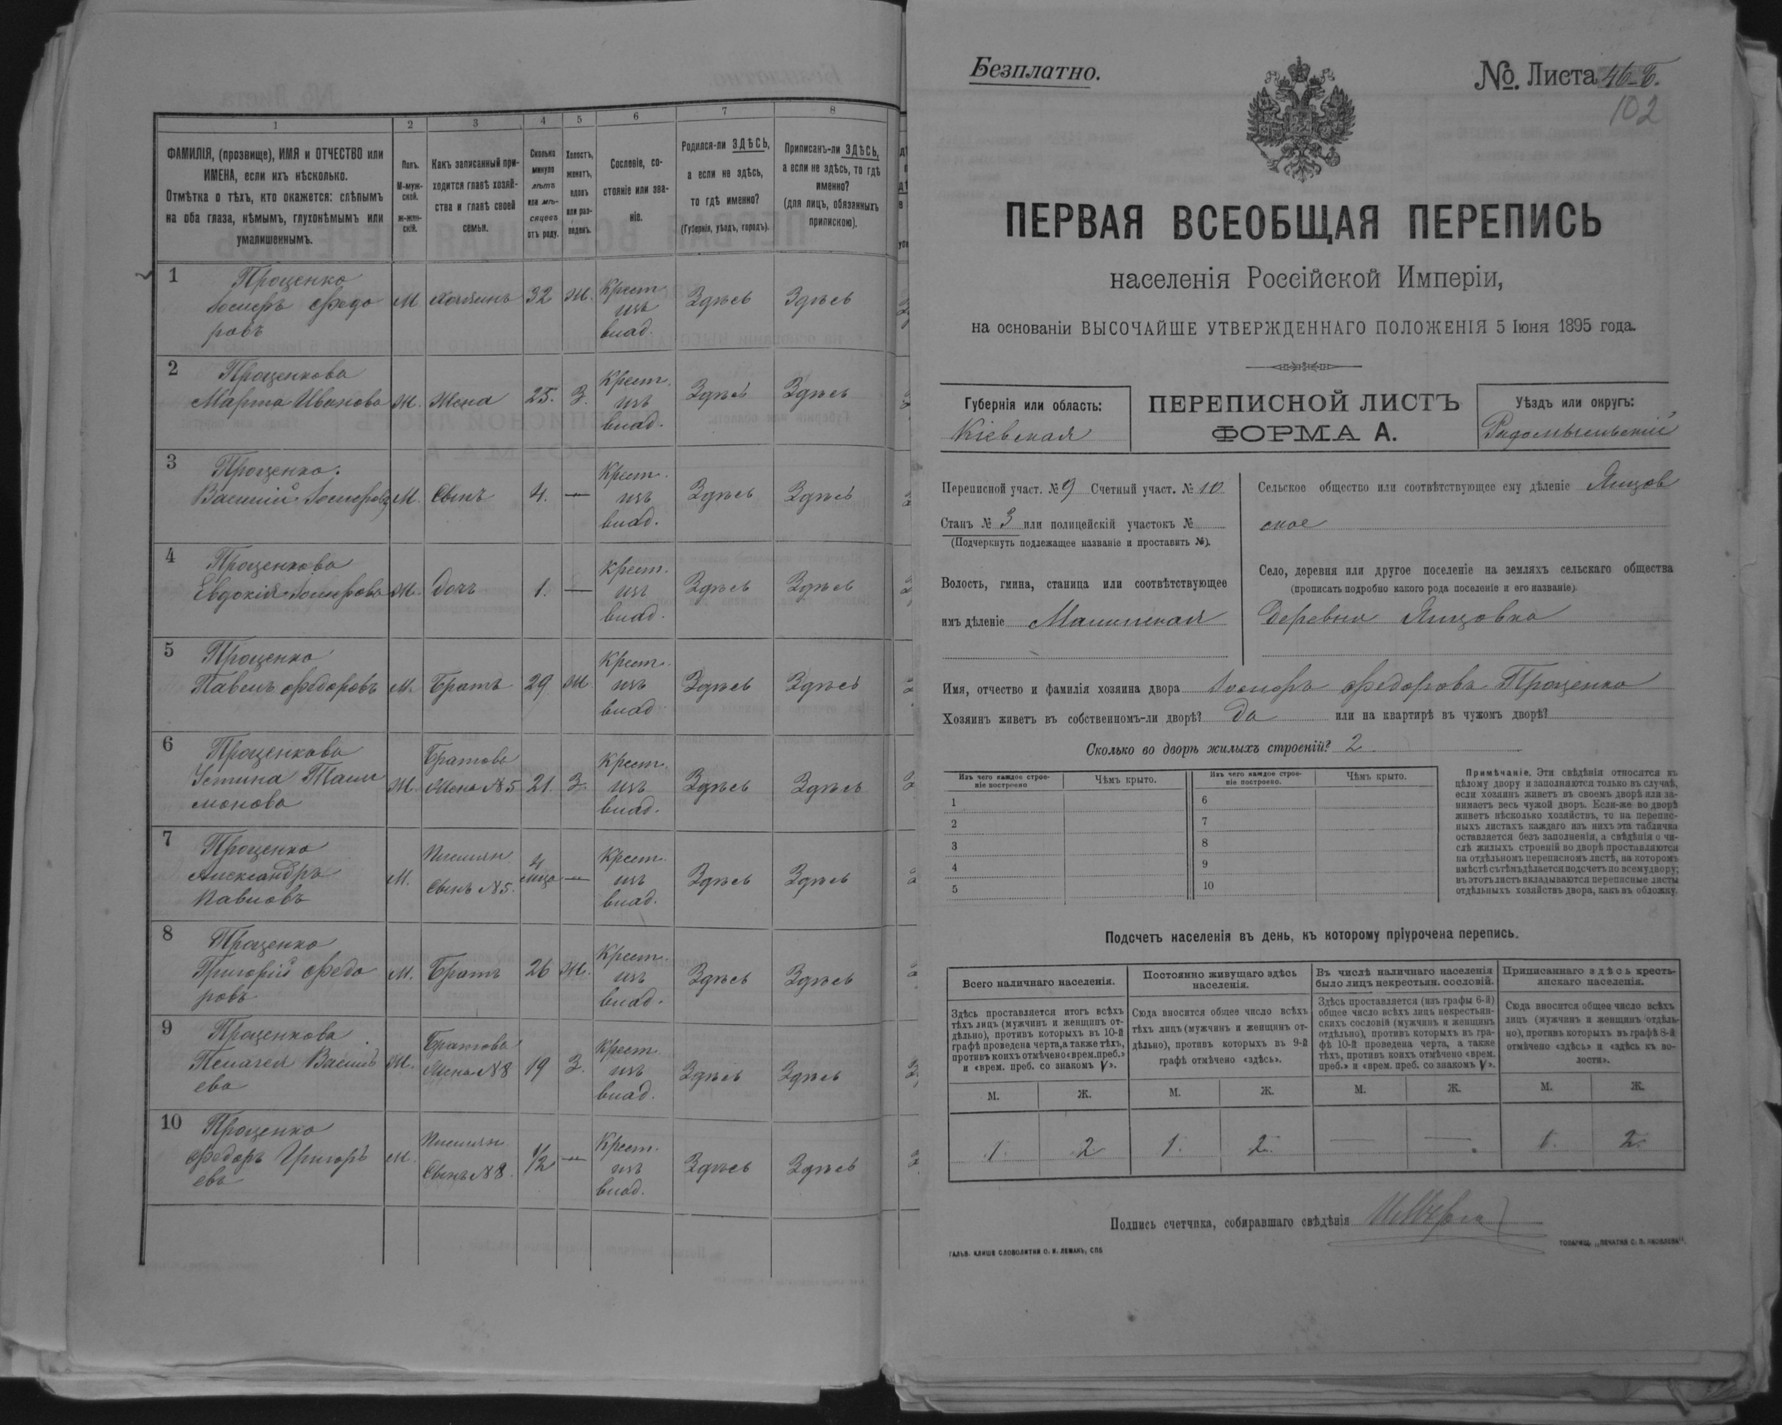 1
2
3
4
5
6
7
8
ФАМИЛІЯ, (прозвище), ИМЯ и ОТЧЕСТВО или
ИМЕНА, если ихъ нѣсколько.
Отмѣтка о тѣхъ, кто окажется: слѣпымъ
на оба глаза, нѣмымъ, глухонѣмымъ или
умалишеннымъ.
Полъ.
М-муж-
ской.
ж-жен-
скій.
Какъ записанный при-
ходится главѣ хозяй-
ства и главѣ своей
семьи.
Сколько
минуло
лѣтъ
или мѣ-
сяцевъ
отъ роду.
Холостъ,
женатъ,
вдовъ
или раз-
веденъ.
Сословіе, со-
стояніе или зва-
ніе.
Родился-ли ЗДѢСЬ,
а если не здѣсь,
то гдѣ именно?
(Губернія, уѣздъ, городъ).
Приписанъ-ли ЗДѢСЬ,
а если не здѣсь, то гдѣ
именно?
(для лицъ, обязанныхъ
припискою).
1
Проценко
Іосифъ Федо
ровъ
М
хозяинъ
32
ж.
Крест.
изъ
влад.
Здѣсь
Здѣсь
2
Проценкова
Марта Иванова
Ж.
Жена
25.
З.
Крест.
изъ
влад.
Здѣсь
Здѣсь
3
Проценко
Василій Іосифовъ
М.
Сынъ
4.
—
Крест.
изъ
влад.
Здѣсь
Здѣсь
4
Проценкова
Евдокія Іосифова
Ж.
Дочь
1.
—
Крест.
изъ
влад.
Здѣсь
Здѣсь
5
Проценко
Павелъ Федоровъ
М.
Братъ
29
ж
Крест.
изъ
влад.
Здѣсь
Здѣсь
6
Проценкова
Устина
монова
Ж.
Братова
Жена №5
21.
З.
Крест.
изъ
влад.
Здѣсь
Здѣсь
7
Проценко
Александръ
Павловъ
М.
Сынъ №5.
—
Крест.
изъ
влад.
Здѣсь
Здѣсь
8
Проценко
Григорій Федо
ровъ
М.
Братъ
26
ж.
Крест.
изъ
влад.
Здѣсь
Здѣсь
9
Проценкова
Пелагея Василь
ева
Ж.
Братова
Жена №8
19
З.
Крест.
изъ
влад.
Здѣсь
Здѣсь
10
Проценко
Федоръ Григорь
евъ
М.
Сынъ №8
1/2
—
Крест.
изъ
влад.
Здѣсь
Здѣсь
Безплатно.
№. Листа 46-Б.
102
ПЕРВАЯ ВСЕОБЩАЯ ПЕРЕПИСЬ
населенія Россійской Имперіи,
на основаніи ВЫСОЧАЙШЕ УТВЕРЖДЕННАГО ПОЛОЖЕНІЯ 5 Іюня 1895 года.
Губернія или область:
Кіевская
ПЕРЕПИСНОЙ ЛИСТЪ
ФОРМА А.
Уѣздъ или округъ:
Радомысльскій
Переписной участ. № 9 Счетный участ. № 10
Станъ № 3 или полицейскій участокъ №
(Подчеркнуть подлежащее названіе и проставить №).
Волость, гмина, станица или соотвѣтствующее
имъ дѣленіе Малинская
Сельское общество или соотвѣтствующее ему дѣленіе Янов
ское
Село, деревня или другое поселеніе на земляхъ сельскаго общества
(прописать подробно какого рода поселеніе и его названіе)
Деревня
Имя, отчество и фамилія хозяина двора Іосифъ Федоровъ Проценко
Хозяинъ живетъ въ собственномъ-ли дворѣ? Да или на квартирѣ въ чужомъ дворѣ?
Сколько во дворѣ жилыхъ строеній? 2
Изъ чего каждое строе-
ніе построено
Чѣмъ крыто.
Изъ чего каждое строе-
ніе построено.
Чѣмъ крыто.
1
2
3
4
5
6
7
8
9
10
Примѣчаніе. Эти свѣдѣнія относятся къ
цѣлому двору и заполняются только въ случаѣ,
если хозяинъ живетъ въ своемъ дворѣ или за-
нимаетъ весь чужой дворъ. Если-же во дворѣ
живетъ нѣсколько хозяйствъ, то на перепис-
ныхъ листахъ каждаго изъ нихъ эта табличка
оставляется безъ заполненія, а свѣдѣнія о чи-
слѣ жилыхъ строеній во дворѣ проставляются
на отдѣльномъ переписномъ листѣ, на которомъ
вмѣстѣ съ тѣмъ дѣлается подсчетъ по всему двору;
въ этотъ листъ вкладываются переписные листы
отдѣльныхъ хозяйствъ двора, какъ въ обложку.
Подсчетъ населенія въ день, къ которому пріурочена перепись.
Всего наличнаго населенія.
Здѣсь проставляется итогъ всѣхъ
тѣхъ лицъ (мужчинъ и женщинъ от-
дѣльно), противъ которыхъ въ 10-й
графѣ проведена черта, а также тѣхъ,
противъ коихъ отмѣчено «врем. преб.»
и «врем. преб. со знакомъ V».
Постоянно живущаго здѣсь
населенія.
Сюда вносится общее число всѣхъ
тѣхъ лицъ (мужчинъ и женщинъ от-
дѣльно), противъ которыхъ въ 9-й
графѣ отмѣчено «здѣсь».
Въ числѣ наличнаго населенія
было лицъ некрестьян. сословій.
Здѣсь проставляется (изъ графы 6-й)
общее число всѣхъ лицъ некрестьян-
скихъ сословій (мужчинъ и женщинъ
отдѣльно), противъ которыхъ въ гра-
фѣ 10-й проведена черта, а также
тѣхъ, противъ коихъ отмѣчено «врем.
преб.» и «врем. преб. со знакомъ V».
Приписаннаго здѣсь кресть-
янскаго населенія.
Сюда вносится общее число всѣхъ
лицъ (мужчинъ и женщинъ отдѣль-
но), противъ которыхъ въ графѣ 8-й
отмѣчено «здѣсь» и «здѣсь къ во-
лости».
М.
Ж.
М.
Ж.
М.
Ж.
М.
Ж.
1.
2
1.
2.
—
—
1.
2.
Подпись счетчика, собиравшаго свѣдѣнія
ГАЛЬВ. КЛИШЕ СЛОВОЛИТНИ О. И. ЛЕМАНЪ, СПБ
ТОВАРИЩ. „ПЕЧАТНЯ С. П. ЯКОВЛЕВА“.